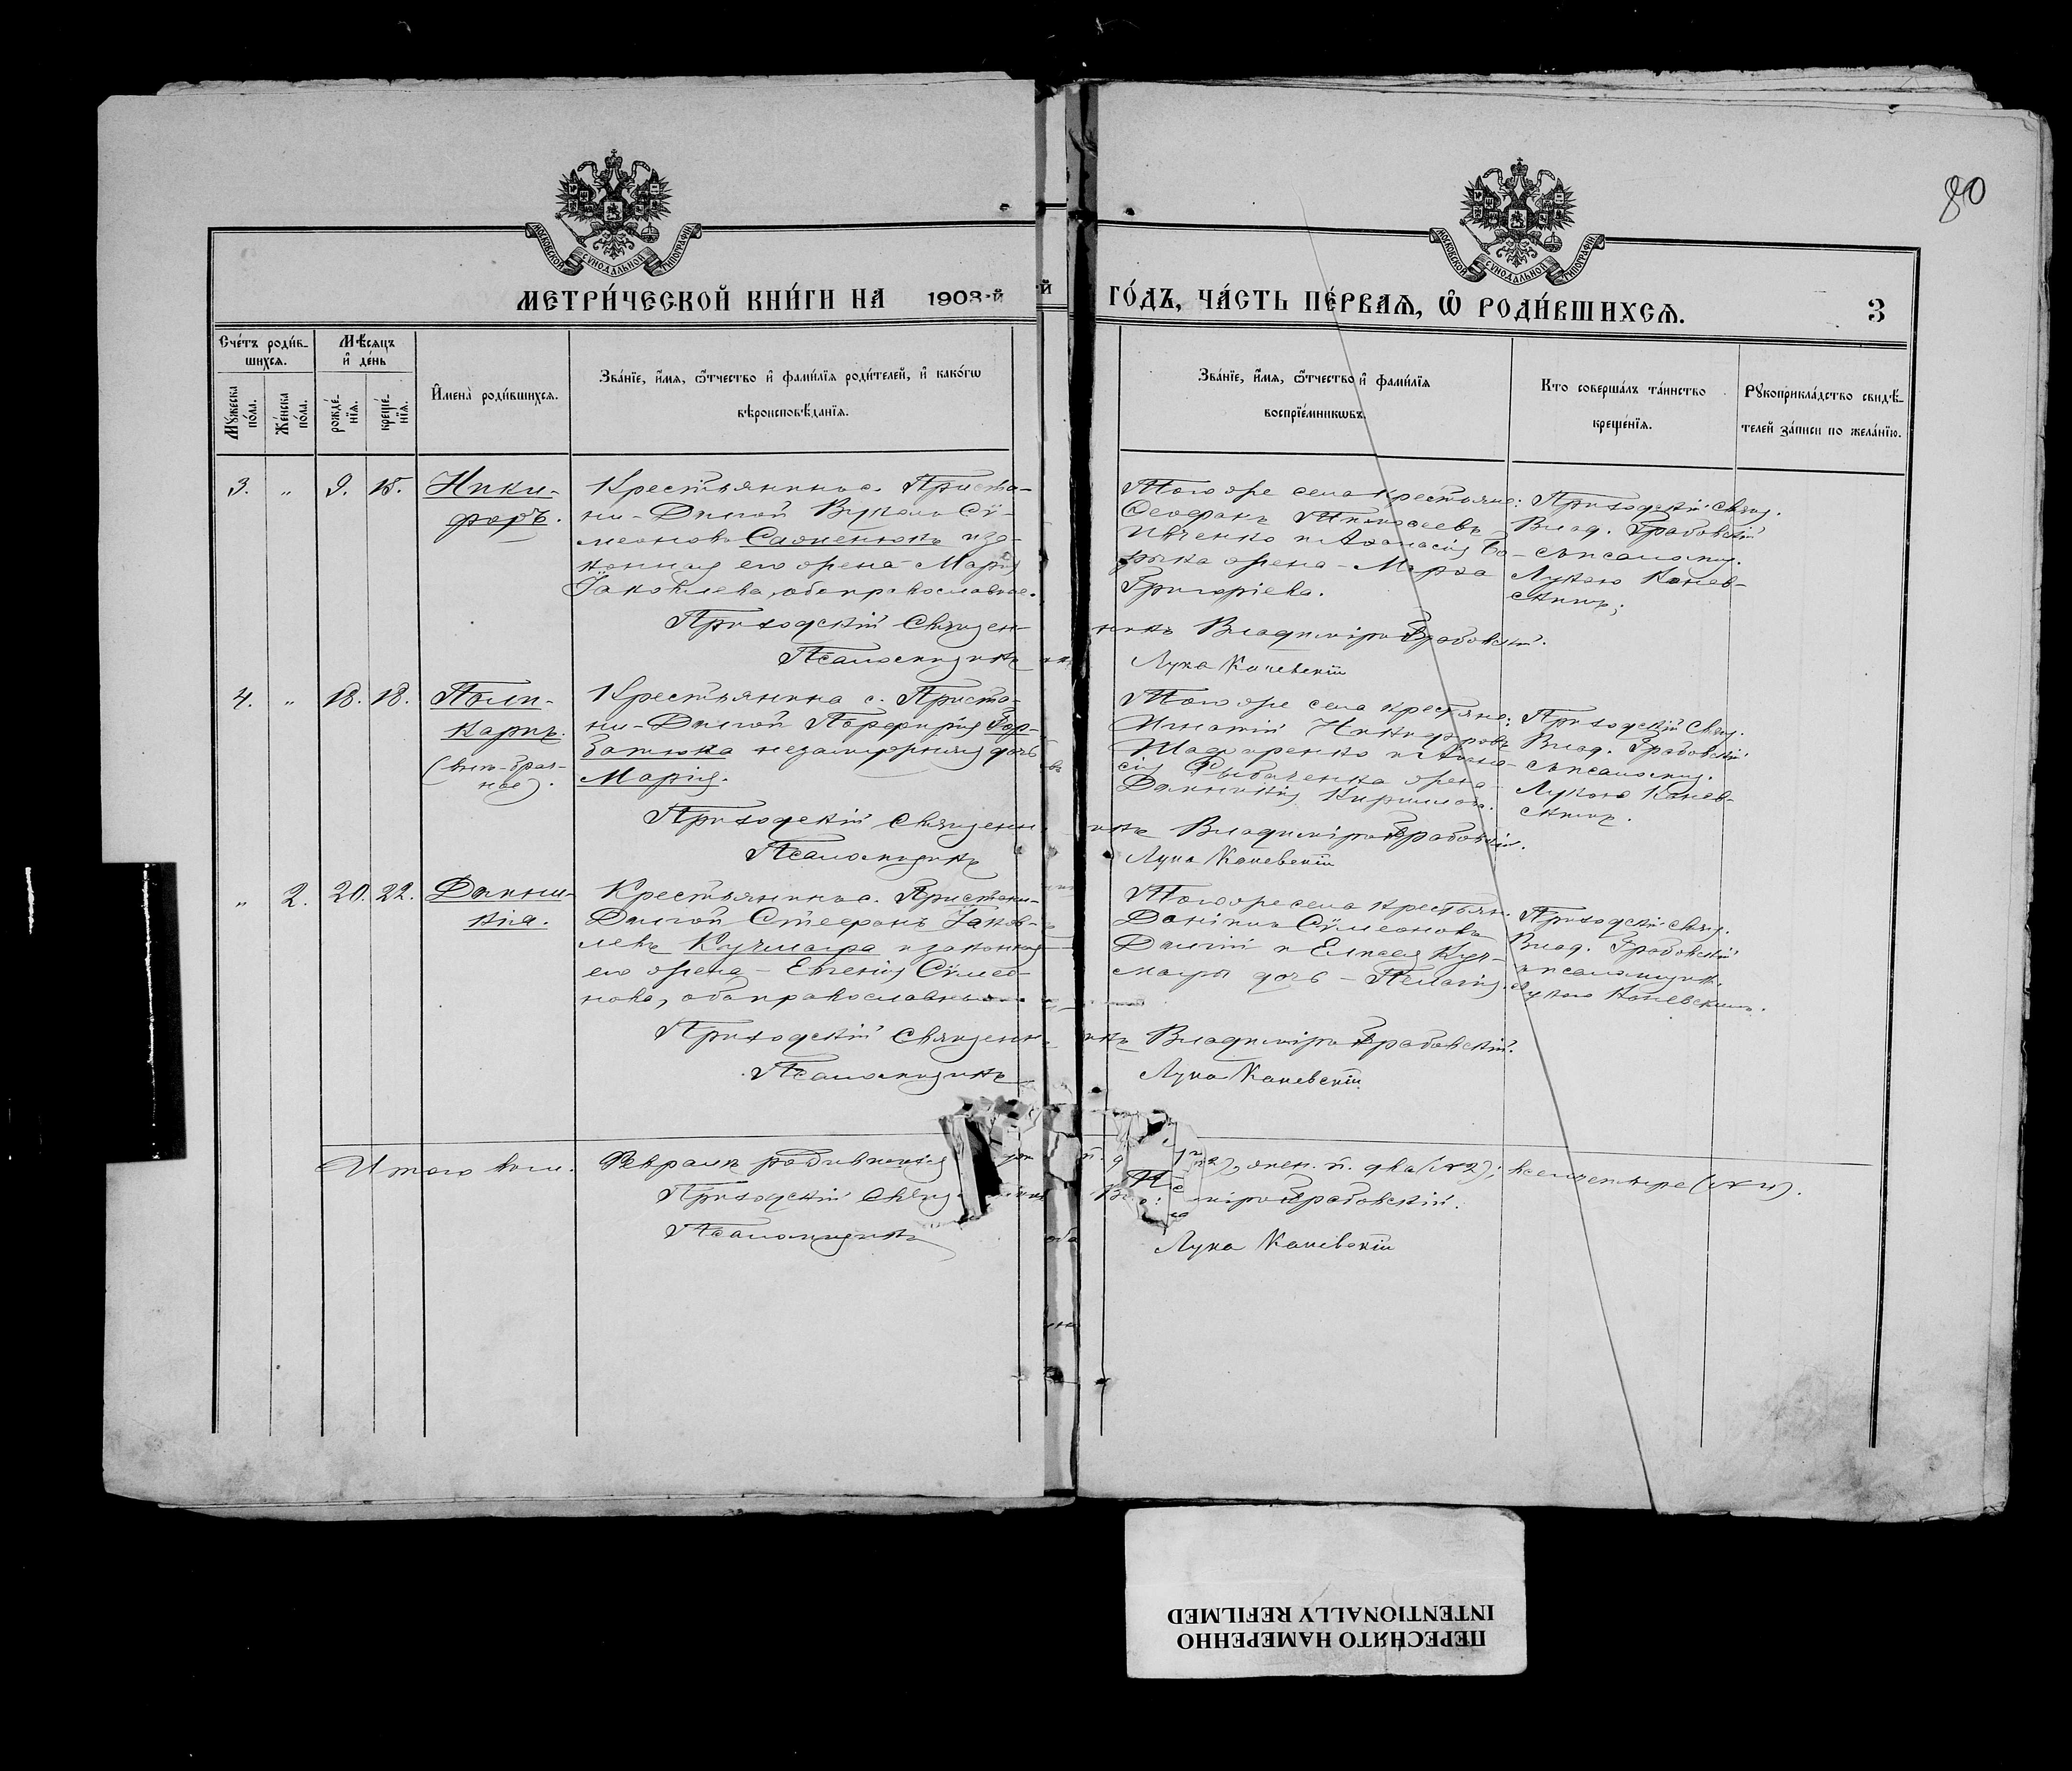 80
МОСКОВСКОЙ СУНОДАЛЬНОЙ ТИПОГРАФІИ
МОСКОВСКОЙ СУНОДАЛЬНОЙ ТИПОГРАФІИ
МЕТРИ́ЧЕСКОЙ КНИ́ГИ НА 1903-й ГО́ДЪ, ЧА́СТЬ ПЕ́РВАѦ, Ѡ҆ РОДИ́ВШИХСѦ.
3
Сче́тъ роди́в-
шихсѧ.
Мꙋжеска по́ла.
Же́нска по́ла.
Мѣ́сѧцъ
и҆ де́нь
рожде́-
нїѧ.
креще́-
нїѧ.
И҆мена̀ роди́вшихсѧ.
Зва́нїе, и҆́мѧ, ѻ҆́тчество и҆ фами́лїѧ роди́телей, и҆ како́гѡ
вѣроисповѣ́данїѧ.
Зва́нїе, и҆́мѧ, ѻ҆́тчество и҆ фами́лїѧ
воспрїе́мникѡвъ.
Кто соверша́лъ та́инство
креще́нїѧ.
Рꙋкоприкла́дство свидѣ́-
телей за́писи по жела́нїю.
3. " 9. 15. Ники-
форъ.
Крестьянинъ с. Приста-
ни-Долгой Вуколъ Сѵ-
меоновъ Саменюкъ и за-
конная его жена Марія
Іаковлева, оба православные.
Того же села крестьяне:
Ѳеофанъ Тимоѳеевъ
Ивченко и Аѳанасія
жена – Марѳа
Григоріева.
Приходскій Свящ.
Влад. Грабовскій
съ псаломщ.
Лукою Канев-
скимъ.
Приходскій Священникъ Владиміръ Грабовскій.
Псаломщикъ Лука Каневскій
4. " 18. 18. Поли-
карпъ.
(вне-брач-
ное).
Крестьянина с. Приста-
ни-Долгой Порфирія Гор-
батюка незамужняя дочь
Марія.
Того же села крестьяне:
Игнатій Никифоровъ
и Аѳана-
сія Рыбаченка жена
Домникія Кириллова.
Приходскій Свящ.
Влад. Грабовскій
съ псаломщ.
Лукою Канев-
скимъ.
Приходскій Священникъ Владиміръ Грабовскій.
Псаломщикъ Лука Каневскій
" 2. 20. 22. Домни-
кія.
Крестьянинъ с. Пристани-
Долгой Стефанъ Іаков-
левъ Кучмагра и законная
его жена – Евгенія Сѵмео-
нова, оба православные
Того же села крестьян.
Даніилъ Сѵмеоновъ
Долгій и Елисея Куч-
магры дочь – Пелагія.
Приходскій свящ.
Влад. Грабовскій
и псаломщик.
Лукою Каневскимъ.
Приходскій Священникъ Владиміръ Грабовскій.
Псаломщикъ Лука Каневскій
Итого въ Февралѣ родившихся жен. п. два (№2); всего четыре (№4).
Приходскій Священникъ Грабовскій.
Псаломщикъ Лука Каневскій
ПЕРЕСНЯТО НАМЕРЕННО
INTENTIONALLY REFILMED